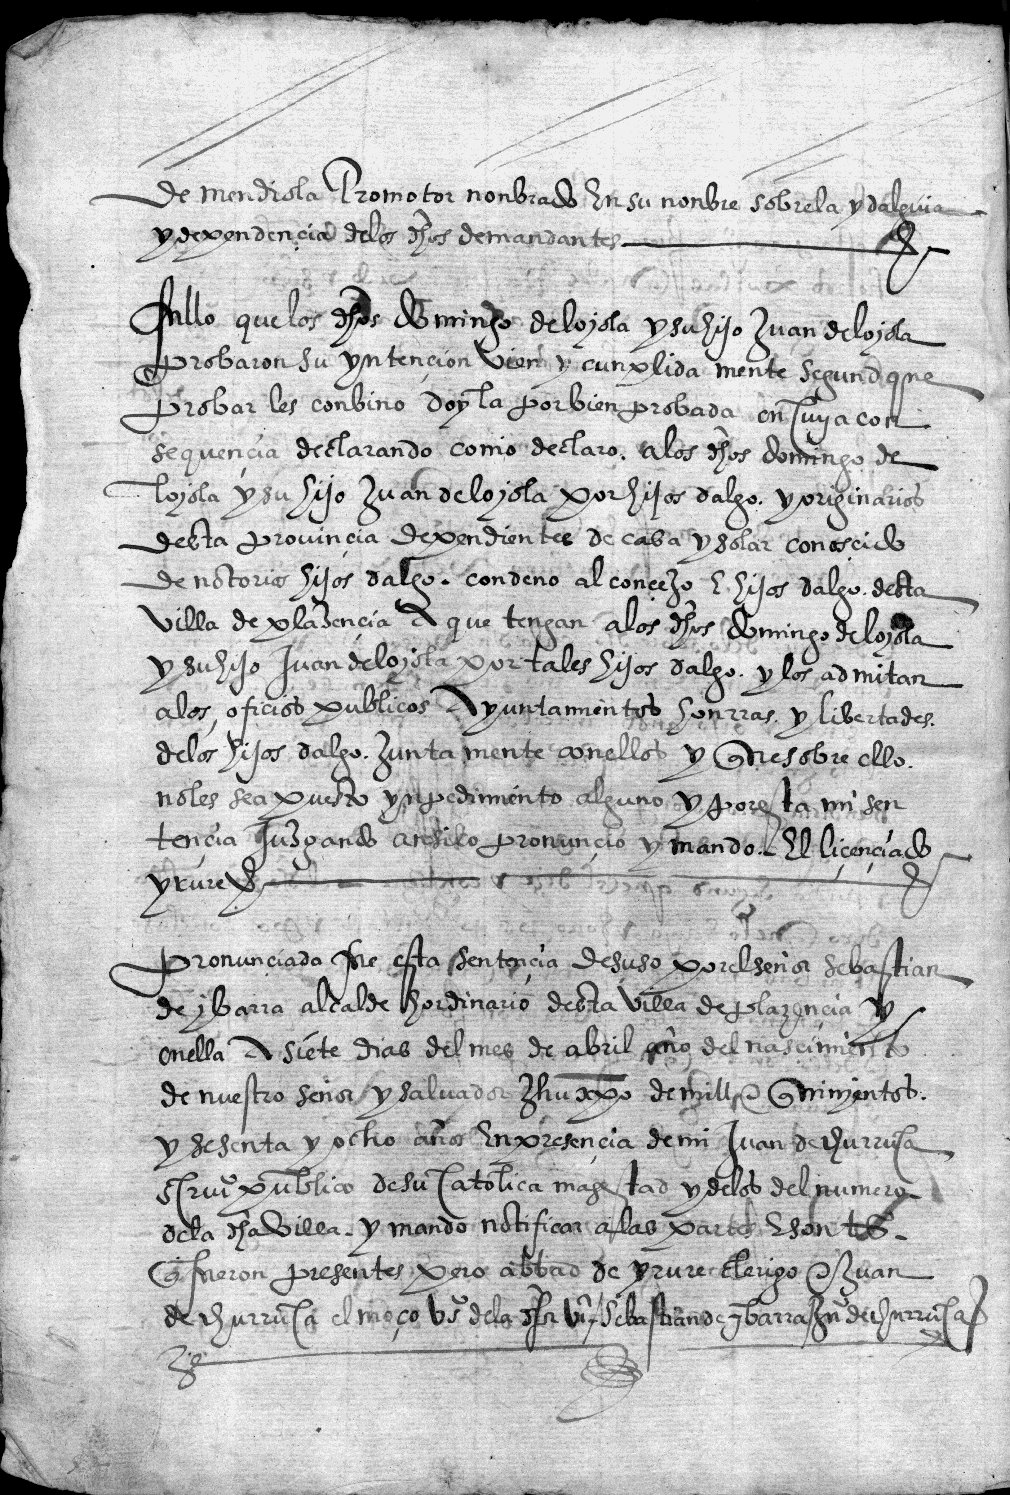 de mendiola Promotor nonbrado En su nonbre sobre la ydalguia
y dependençia delos dhos demandantes
fallo que los dhos domingo deloyola y su hijo Juan deloyola
probaron su yntençion bien y cunplida mente segund que
probar les conbino doyla por bien probada en cuya con
sequençia declarando como declaro. alos dhos domingo de
loyola y su hijo Juan deloyola por hijos dalgo. y originarios
desta provinçia dependientes de casa y solar conosçido
de notorios hijos dalgo. condeno al conçejo E hijos dalgo. desta
villa de plazençia A que tengan alos dhos domingo deloyola
y su hijo Juan deloyola por tales hijos dalgo. y los admitan
alos ofiçios publicos Ayuntamientos honrras. y libertades.
delos hijos dalgo. Junta mente conellos y que sobre ello.
noles sea puesto ynpedimiento alguno y por esta mi sen
tençia Juzgando ansi lo pronunçio y mando. El liçençiado
yrure
pronunçiada fue esta sentençia desuso por el señor sebastian
de ybarra alcalde hordinario desta villa de plazençia y
enella A siete dias del mes de abril año del nasçimiento
de nuestro señor y salvador Jhu xpo de mill e quinientos.
y sesenta y ocho años En presençia de mi Juan de churruca
scriuº publico de su catolica magestad y delos del numero
dela dha villa. y mando notificar alas partes E son tsº
q̃ fueron presentes pero abbad de yrure clerigo e Juan
de churruca el moço vsº dela dha vª / sebastian de ybarra / Juº de churruca